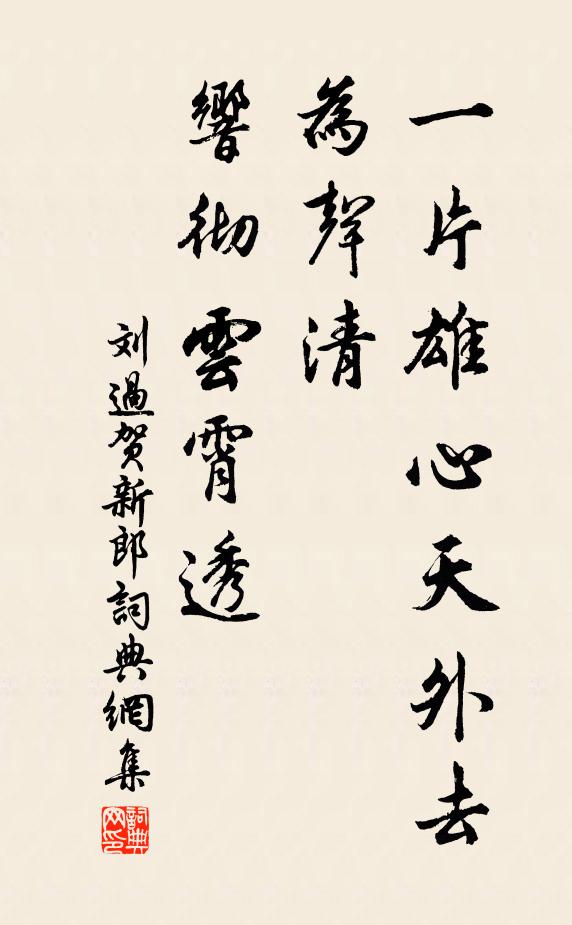 一片雄心天外去
為聲清
響彻雲霄透
刘過賀新郎詞典網集
詞典网印